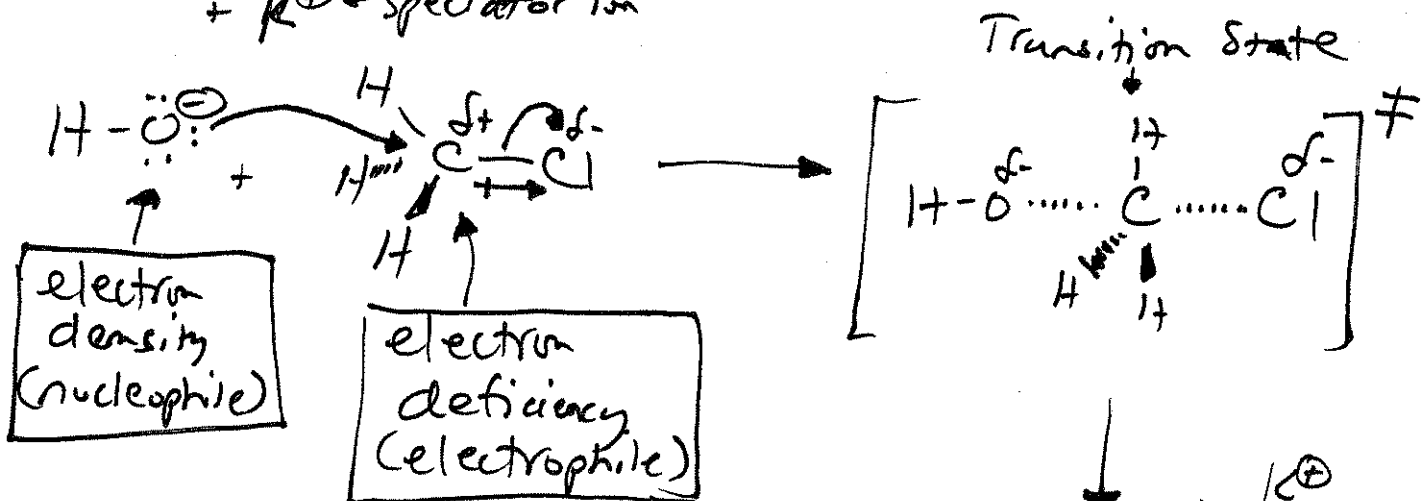 + K⊕ ← spectator ion
Transition State
H-Ö:⊖ + H H H C δ+ — Cl δ-
[H-O δ- ······ C ······ Cl δ- H H H]‡
electron
density
(nucleophile)
electron
deficiency
(electrophile)
K⊕